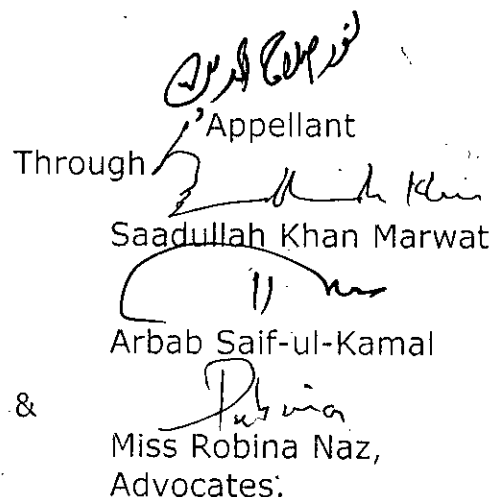 Appellant
Through
Saadullah Khan Marwat
Arbab Saif-ul-Kamal
&
Robina
Miss Robina Naz,
Advocates.